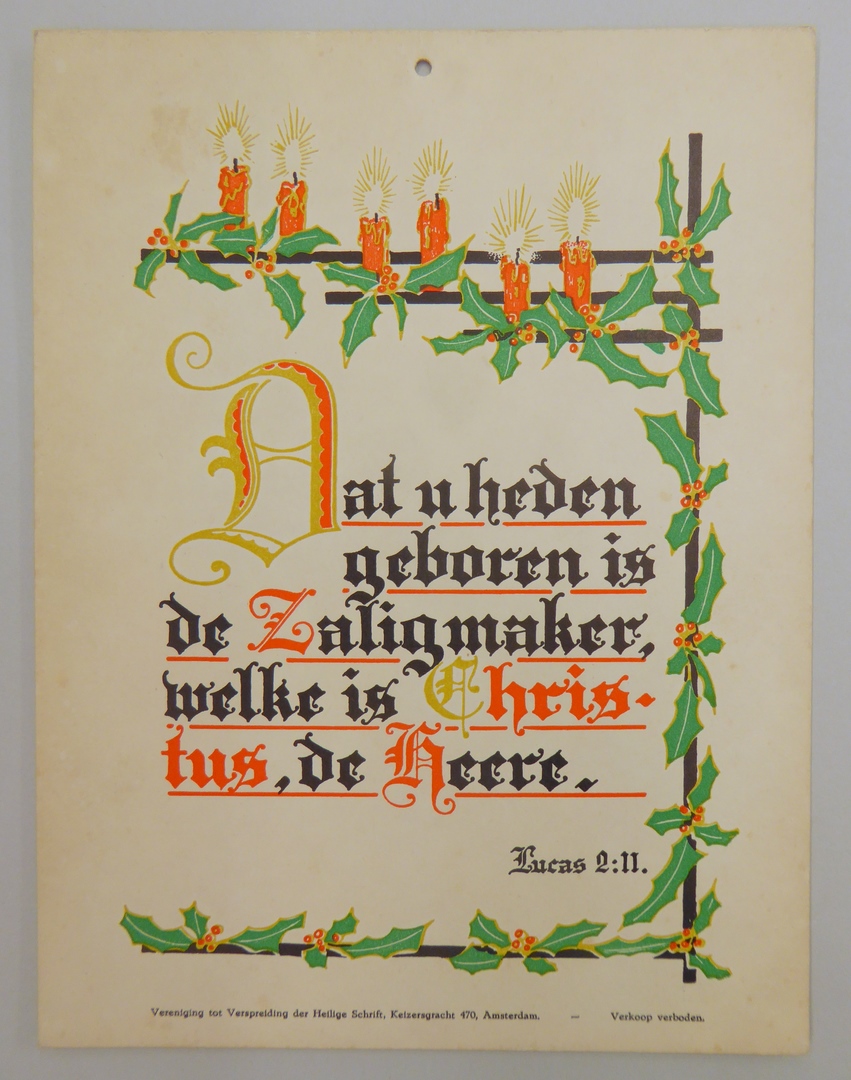 Dat u heden
geboren is
de Zaligmaker,
welke is Chris-
tus, de Heere.
Lucas 2:11.
Vereniging tot Verspreiding der Heilige Schrift, Keizersgracht 470, Amsterdam. — Verkoop verboden.